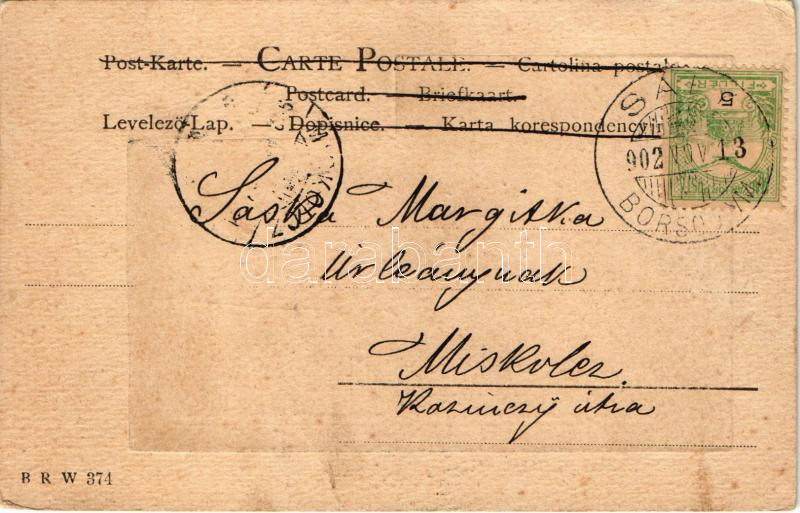 Post-Karte. — CARTE POSTALE. — Cartolina postale
Postcard. — Briefkaart.
Levelező-Lap. — Dopisnice. — Karta korespondencyjna
5
FILLÉR
902 NOV 13
BORSOD VM
Saska Margitka
Úrleánynak
Miskolcz
Kazinczy útza
darabanth
B R W 374